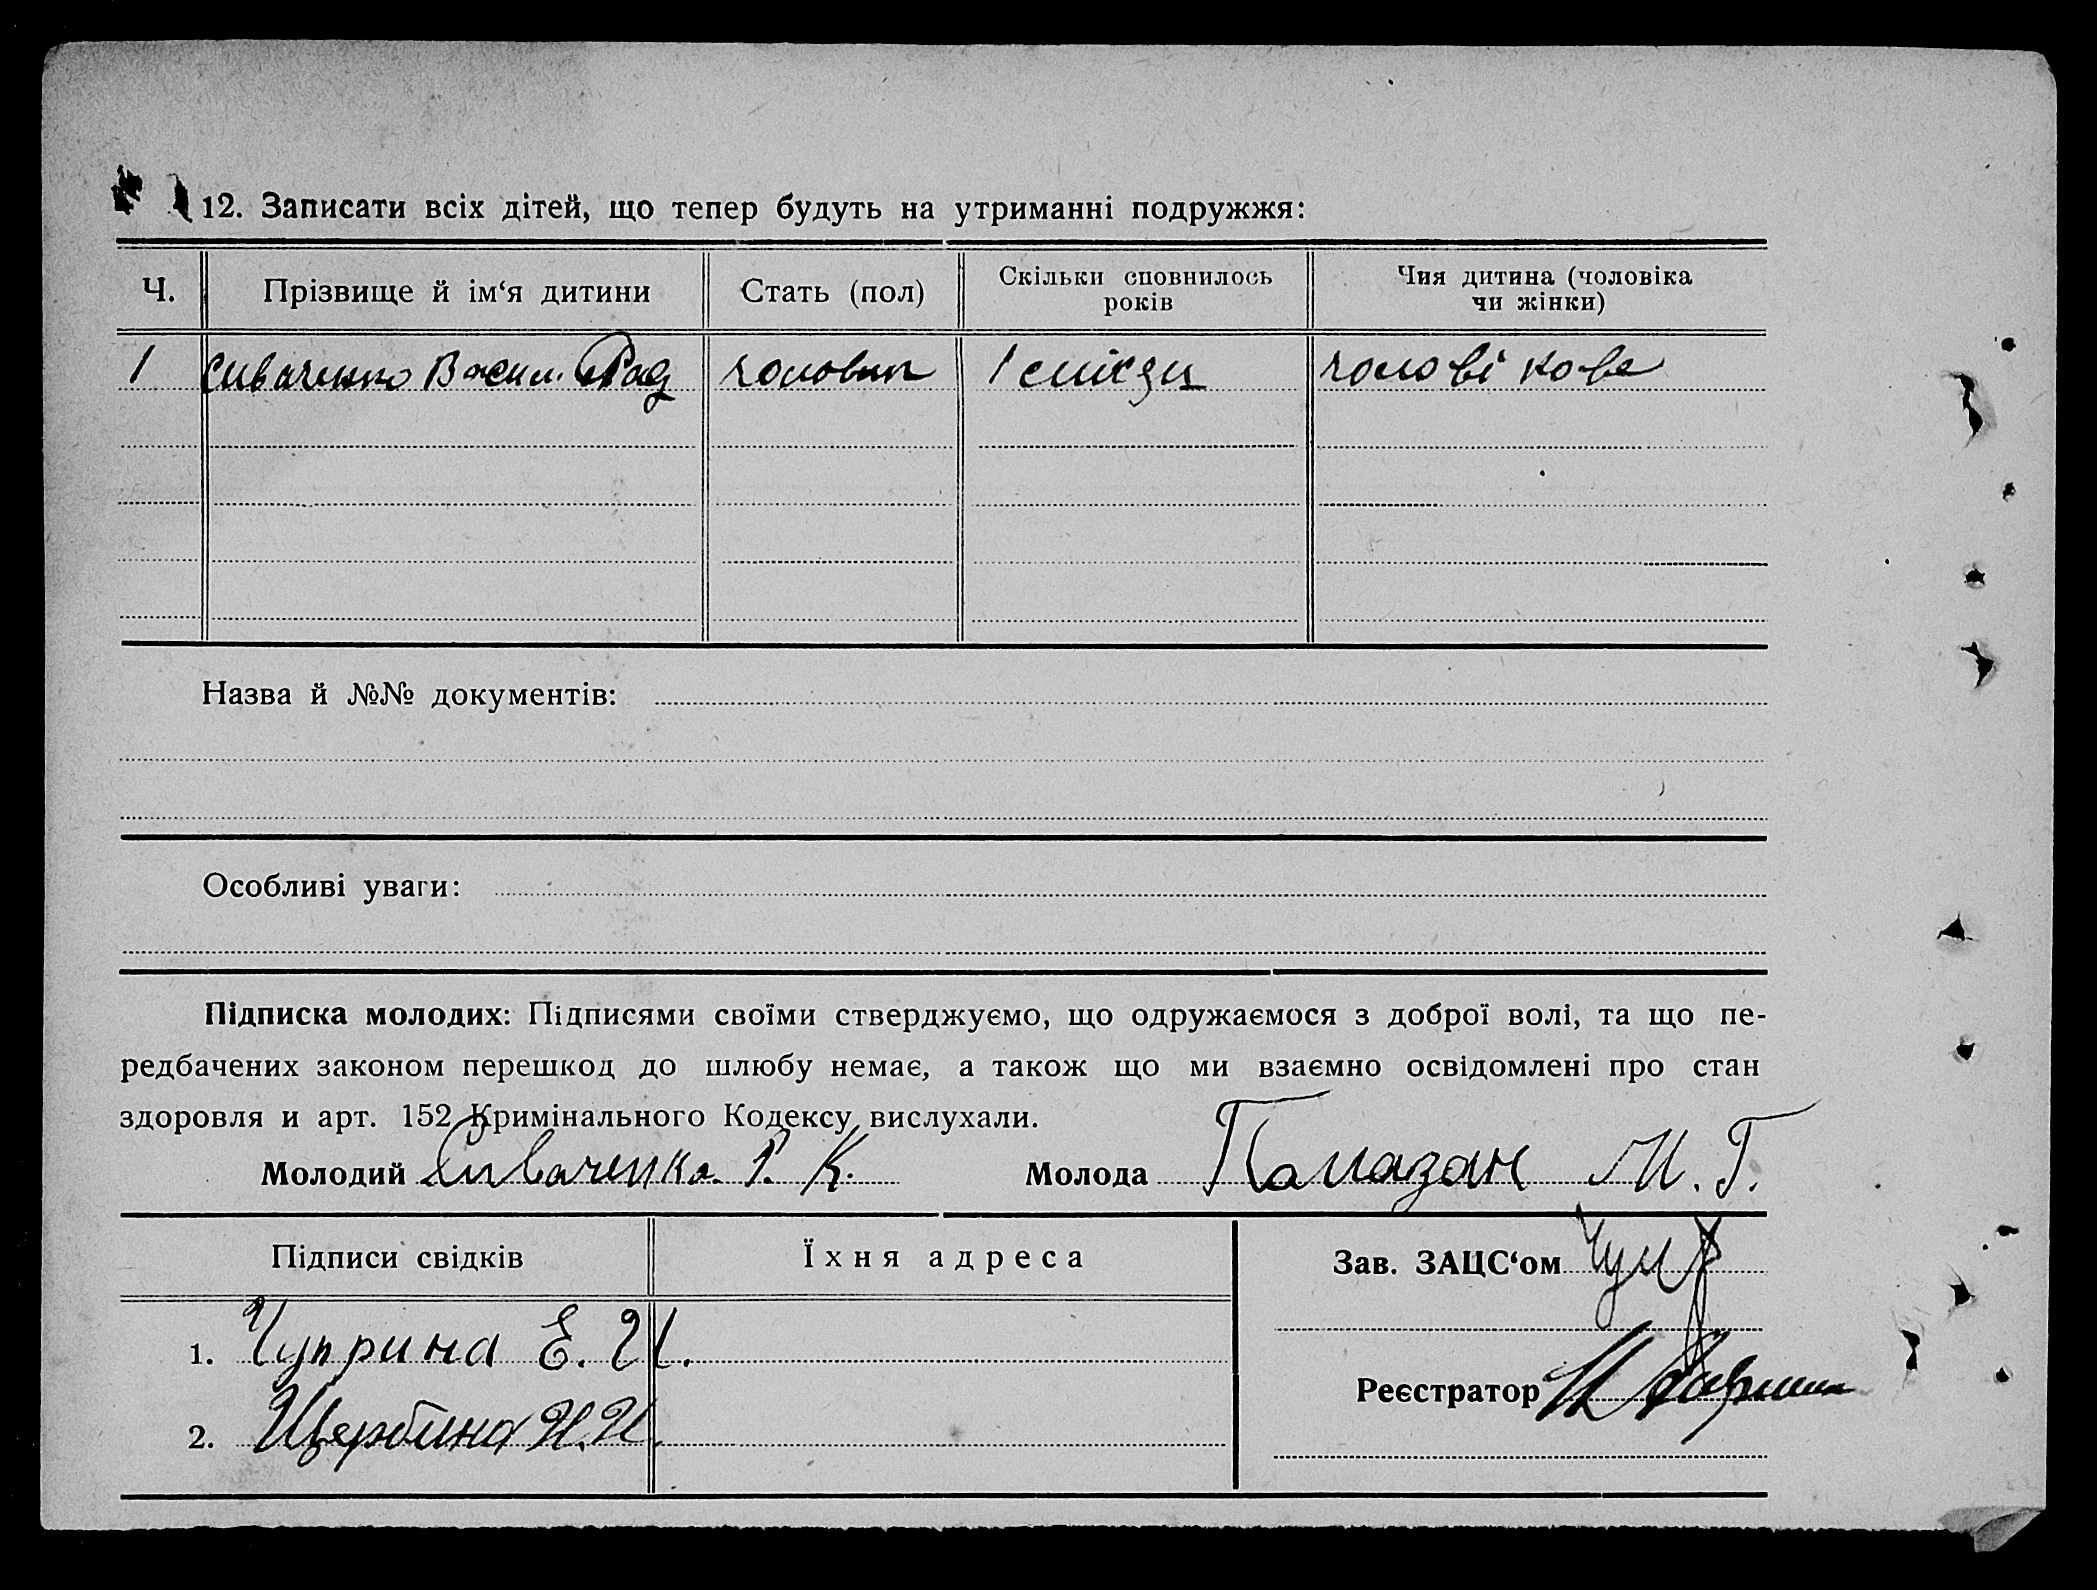 12. Записати всіх дітей, що тепер будуть на утриманні подружжя:
Ч. Прізвище й ім‘я дитини Стать (пол) Скільки сповнилось років Чия дитина (чоловіка чи жінки)
1 Сиваченко Васил. Рад чоловіч 1 місяц чоловікове
Назва й №№ документів:
Особливі уваги:
Підписка молодих: Підписями своїми стверджуємо, що одружаємося з доброї волі, та що пе-
редбачених законом перешкод до шлюбу немає, а також що ми взаємно освідомлені про стан
здоровля и арт. 152 Кримінального Кодексу вислухали.
Молодий Сиваченко. Р. К. Молода Памазан М. Г.
Підписи свідків Їхня адреса Зав. ЗАЦС‘ом
1. Чуприна Е. И.
Реєстратор
2. Щербина И. И.